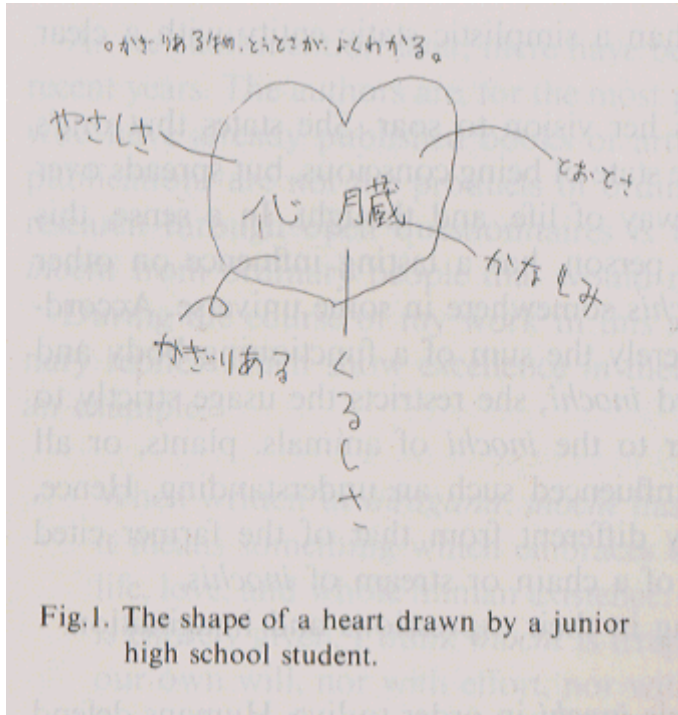 ○かぎりある物、とうとさが、よくわかる。
やさしさ
とおとさ
心臓
かなしみ
かぎりある
くるしさ
Fig.1. The shape of a heart drawn by a junior
high school student.